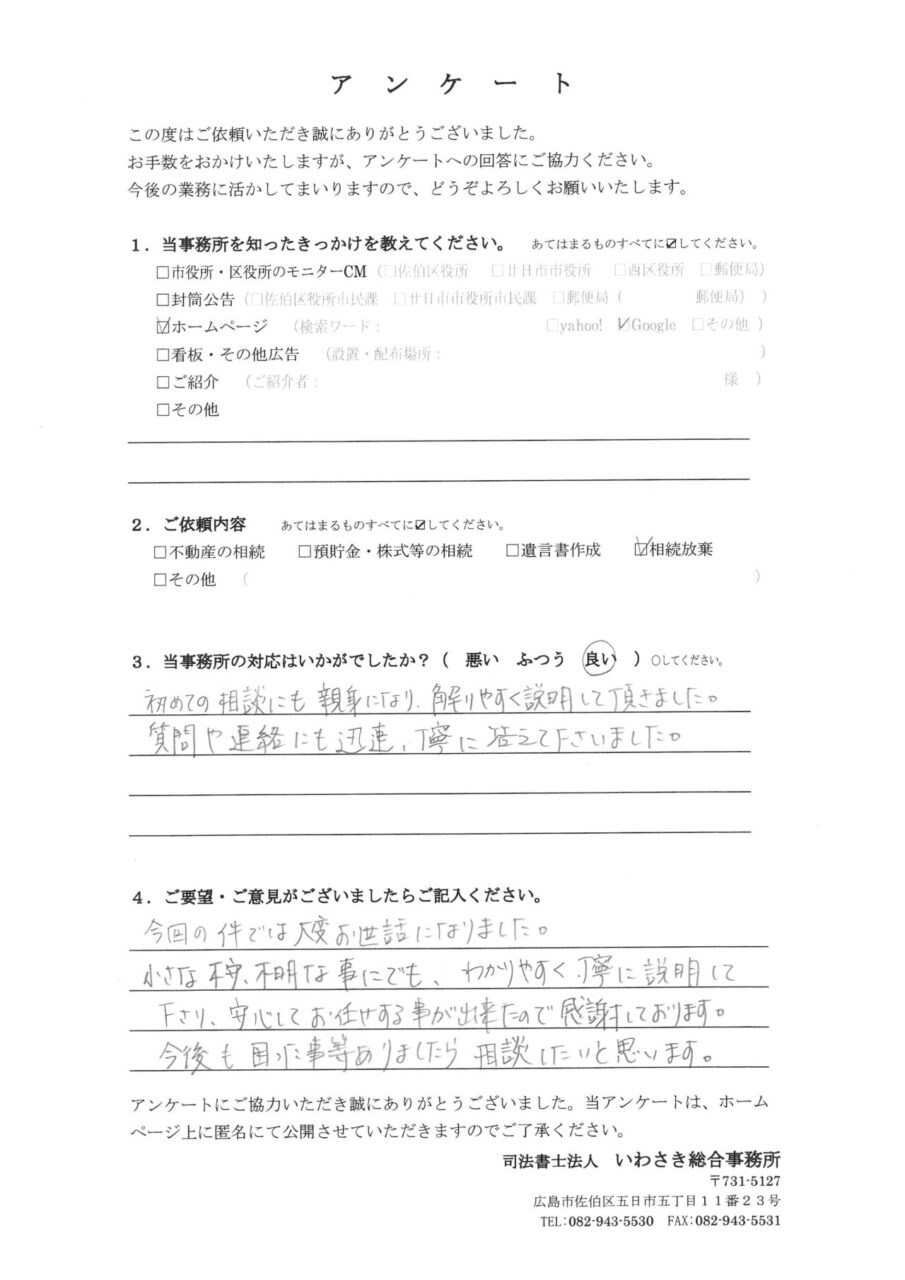 アンケート
この度はご依頼いただき誠にありがとうございました。
お手数をおかけいたしますが、アンケートへの回答にご協力ください。
今後の業務に活かしてまいりますので、どうぞよろしくお願いいたします。
1．当事務所を知ったきっかけを教えてください。 あてはまるものすべてに☑してください。
□市役所・区役所のモニターCM（□佐伯区役所 □廿日市市役所 □西区役所 □郵便局）
□封筒公告（□佐伯区役所市民課 □廿日市市役所市民課 □郵便局（ 郵便局））
☑ホームページ （検索ワード： □yahoo! ☑Google □その他）
□看板・その他広告 （設置・配布場所： ）
□ご紹介 （ご紹介者： 様 ）
□その他
2．ご依頼内容 あてはまるものすべてに☑してください。
□不動産の相続 □預貯金・株式等の相続 □遺言書作成 ☑相続放棄
□その他 （ ）
3．当事務所の対応はいかがでしたか？（ 悪い ふつう 良い ）○してください。
初めての相談にも親身になり、解りやすく説明して頂きました。
質問や連絡にも迅速、丁寧に答えて下さいました。
4．ご要望・ご意見がございましたらご記入ください。
今回の件では大変お世話になりました。
小さな不安、不明な事にでも、わかりやすく丁寧に説明して
下さり、安心してお任せする事が出来たので感謝しております。
今後も困った事等ありましたら相談したいと思います。
アンケートにご協力いただき誠にありがとうございました。当アンケートは、ホーム
ページ上に匿名にて公開させていただきますのでご了承ください。
司法書士法人 いわさき総合事務所
〒731-5127
広島市佐伯区五日市五丁目１１番２３号
TEL:082-943-5530 FAX:082-943-5531